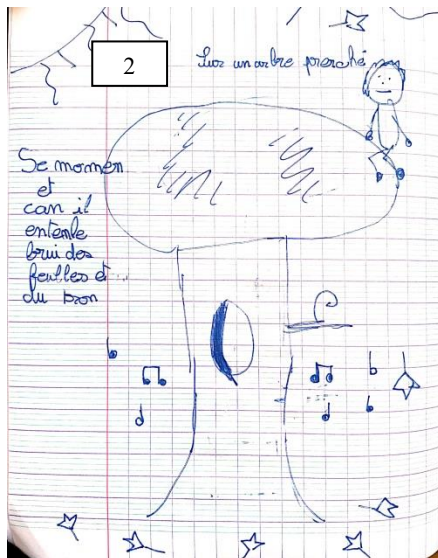 2
Sur un arbre prerché
Se momen
et
can il
entente
brui des
feuilles et
du tron